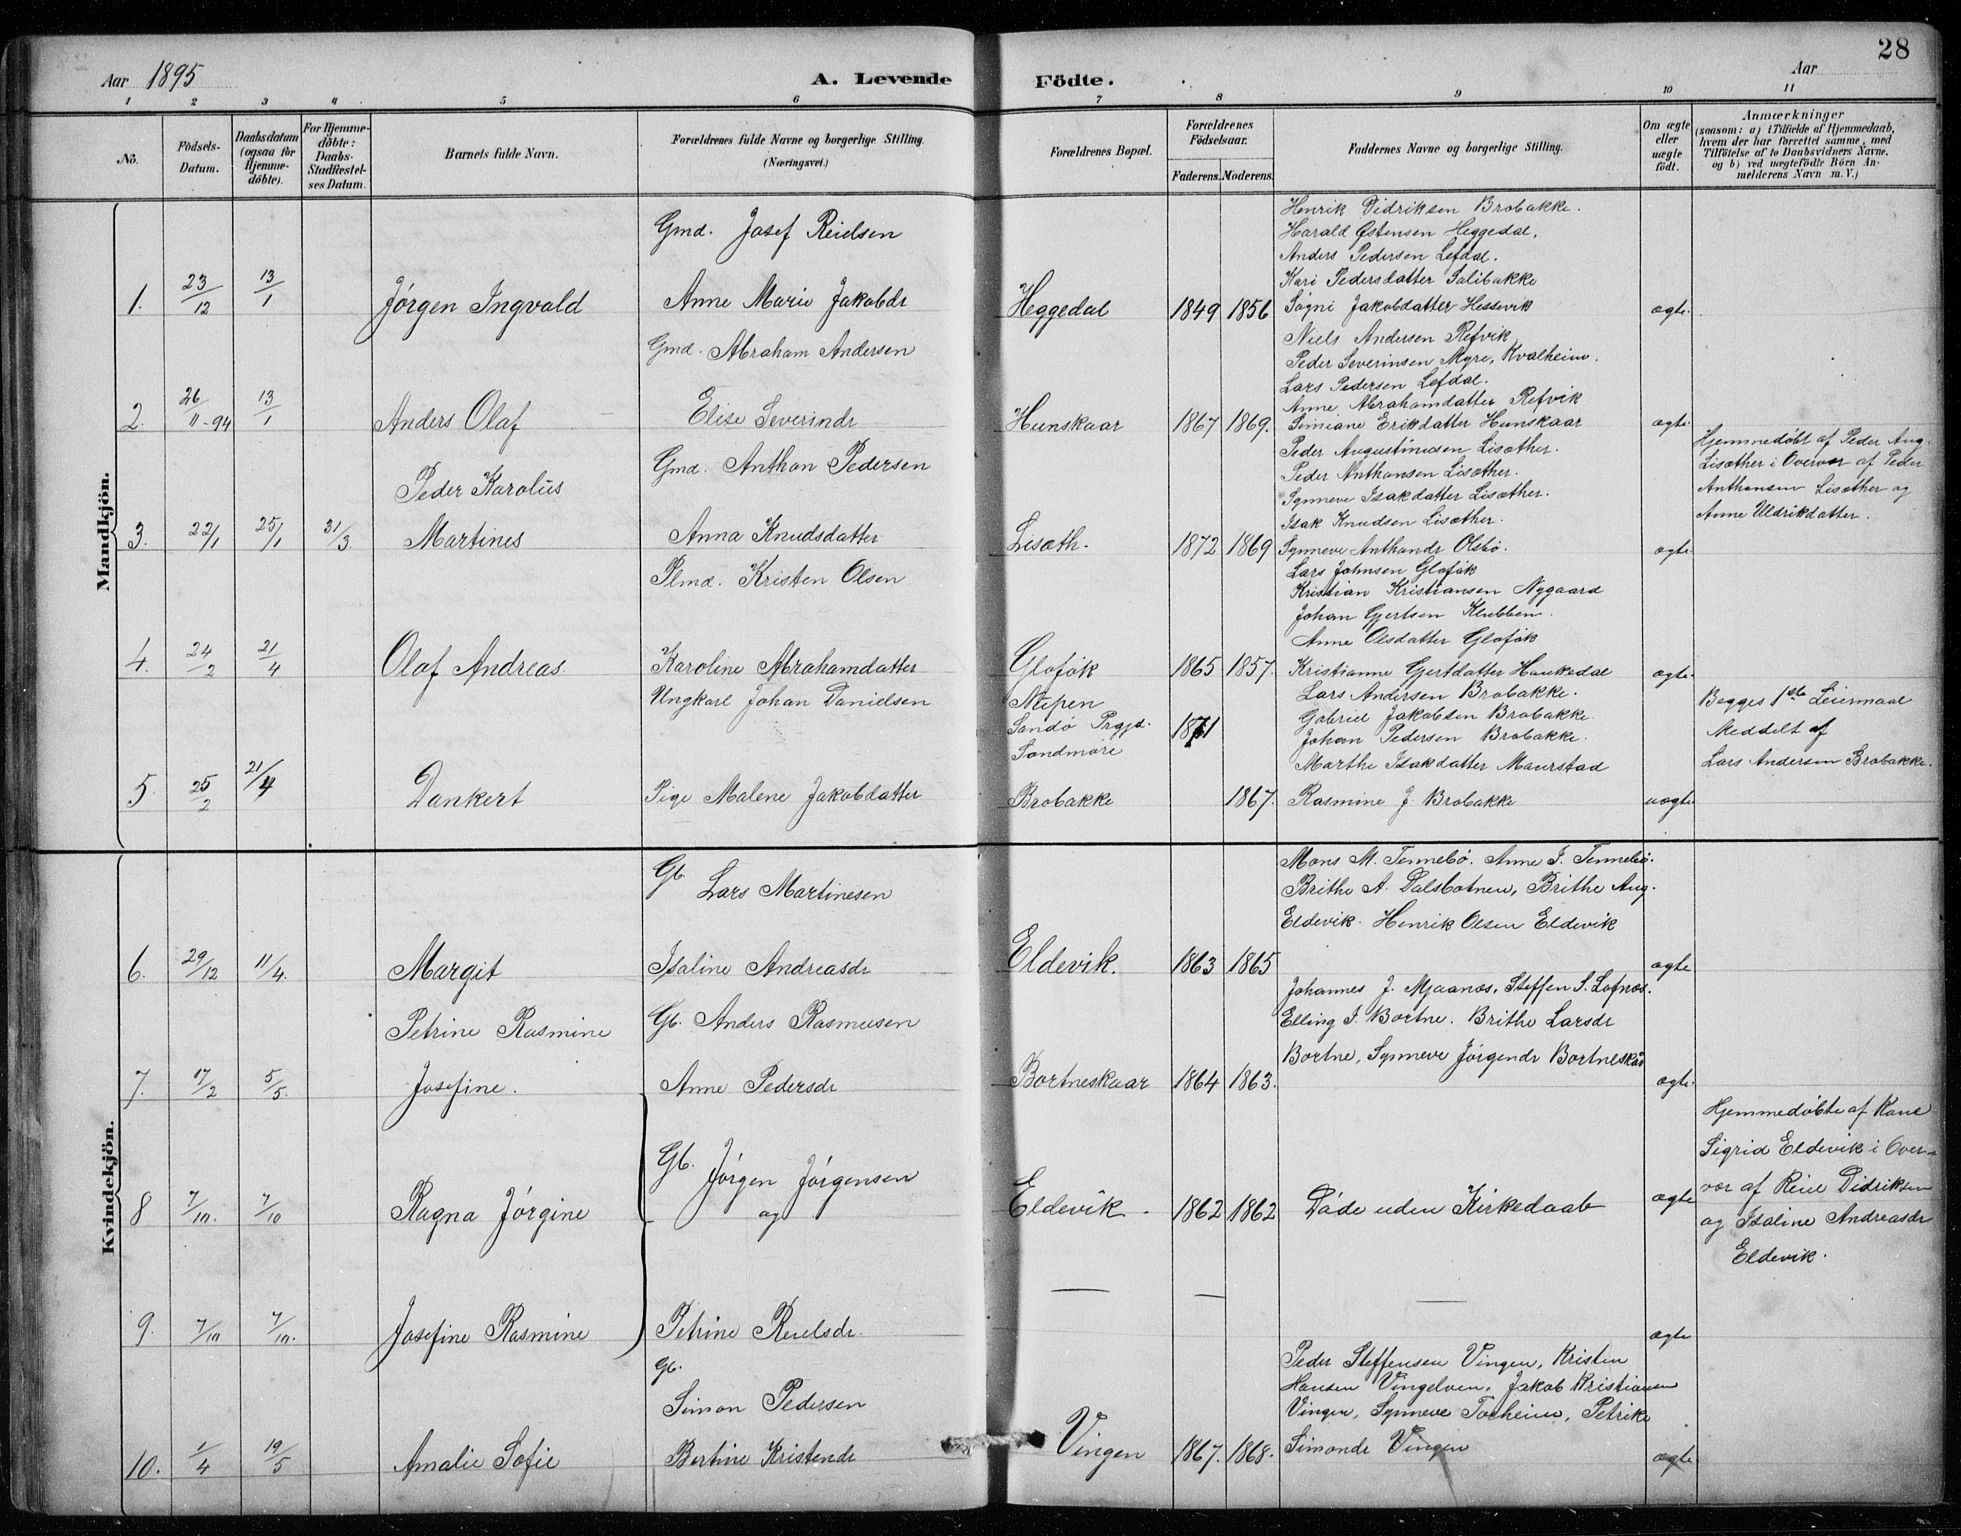 Aar 1895
A. Levende Födte.
Aar
28
1 2 3 4 5 6 7 8 9 10 11
No.
Födsels-Datum.
Daabsdatum (ogsaa for Hjemmedöbte).
For Hjemmedöbte: Daabs-Stadfæstelses Datum.
Barnets fulde Navn.
Forældrenes fulde Navne og borgerlige Stilling. (Næringsvei.)
Forældrenes Bopæl.
Forældrenes Födselsaar.
Faderens. Moderens.
Faddernes Navne og borgerlige Stilling.
Om ægte eller uægte födt.
Anmærkninger
(saasom: a) i Tilfælde af Hjemmedaab,
hvem der har forrettet samme, med
Tilföielse af to Daabsvidners Navne,
og b) ved uægtefödte Börn An-
melderens Navn m. V.)
Mandkjön.
1. 23/12 13/1 Jørgen Ingvald
Gmd. Josef Reielsen
Anne Marie Jakobdr
Heggedal 1849 1856
Henrik Didriksen Brobakke.
Harald Østensen Heggedal,
Anders Pedersen Lefdal.
Kari Pedersdatter Salibakke
Søgni Jakobdatter Hessevik
ægte.
2. 26/11-94 13/1 Anders Olaf
Gmd. Abraham Andersen
Elise Severindr
Hunskaar 1867 1869.
Niels Andersen Refvik
Peder Severinsen Myre, Kvalheim.
Lars Pedersen Lefdal.
Anne Abrahamdatter Refvik
Simiane Erikdatter Hunskaar
ægte.
3. 22/1 25/1 31/3. Peder Karolus
Martines
Gmd. Anthon Pedersen
Anna Knudsdatter
Lisæth. 1872 1869
Peder Augustinusen Lisæther.
Peder Anthonsen Lisæther.
Synneve Isakdatter Lisæther.
Isak Knudsen Lisæther.
Synneve Anthondr Olsbø.
ægte
Hjemmedøbt af Peder Aug.
Lisæther i Overvær af Peder
Anthonsen Lisæther og
Anne Uldrikdatter.
4. 24/2 21/4 Olaf Andreas
Plmd. Kristen Olsen
Karoline Abrahamdatter
Gloføk 1865 1857.
Lars Johnsen Gloføk
Kristian Kristiansen Nygaard
Johan Gjertsen Klubben.
Anne Olsdatter Gloføk
Kristianne Gjertdatter Haukedal
ægte.
5. 25/2 21/4 Dankert
Ungkarl Johan Danielsen
Pige Malene Jakobdatter
Nipen
Sandø Prgjd.
Søndmøre
1871
Brobakke 1867.
Lars Andersen Brobakke.
Gabriel Jakobsen Brobakke
Johan Pedersen Brobakke.
Marthe Isakdatter Maurstad
Rasmine J. Brobakke
uægte
Begges 1ste Leiermaal
Meddelt af
Lars Andersen Brobakke.
Kvindekjön.
6. 29/12 11/4. Margit
Gb. Lars Martinesen
Isaline Andreasdr
Eldevik. 1863 1865
Mons M. Tennebø. Anne J. Tennebø.
Brithe A. Dalsbotnen, Brithe Aug.
Eldevik. Henrik Olsen Eldevik
ægte
7. 17/2 5/5. Petrine Rasmine
Josefine.
Gb. Anders Rasmusen
Anne Pedersdr
Bortneskaar 1864 1863.
Johannes J. Myaanæs, Steffen S. Lofnæs.
Elling J. Bortne. Brithe Larsdr
Bortne, Synneve Jørgendr Bortneskår
ægte.
8 7/10. 7/10 Ragna Jørgine
Gb. Jørgen Jørgensen
og
Eldevik 1862 1862
Døde uden Kirkedaab
ægte
Hjemmedøbte af Kone
Sigrid Eldevik i Over-
vær af Reiel Didriksen
og Isaline Andreasdr
Eldevik.
9. 7/10 7/10. Josefine Rasmine
Petrine Reielsdr.
— — —
ægte
10. 1/4 19/5 Amalie Sofie
Gb.
Simon Pedersen
Bertine Kristendr
Vingen 1867. 1868.
Peder Steffensen Vingen, Kristen
Hansen Vingelven, Jakob Kristiansen
Vingen, Synneve Torheim, Petrike
Simondr Vingen
ægte